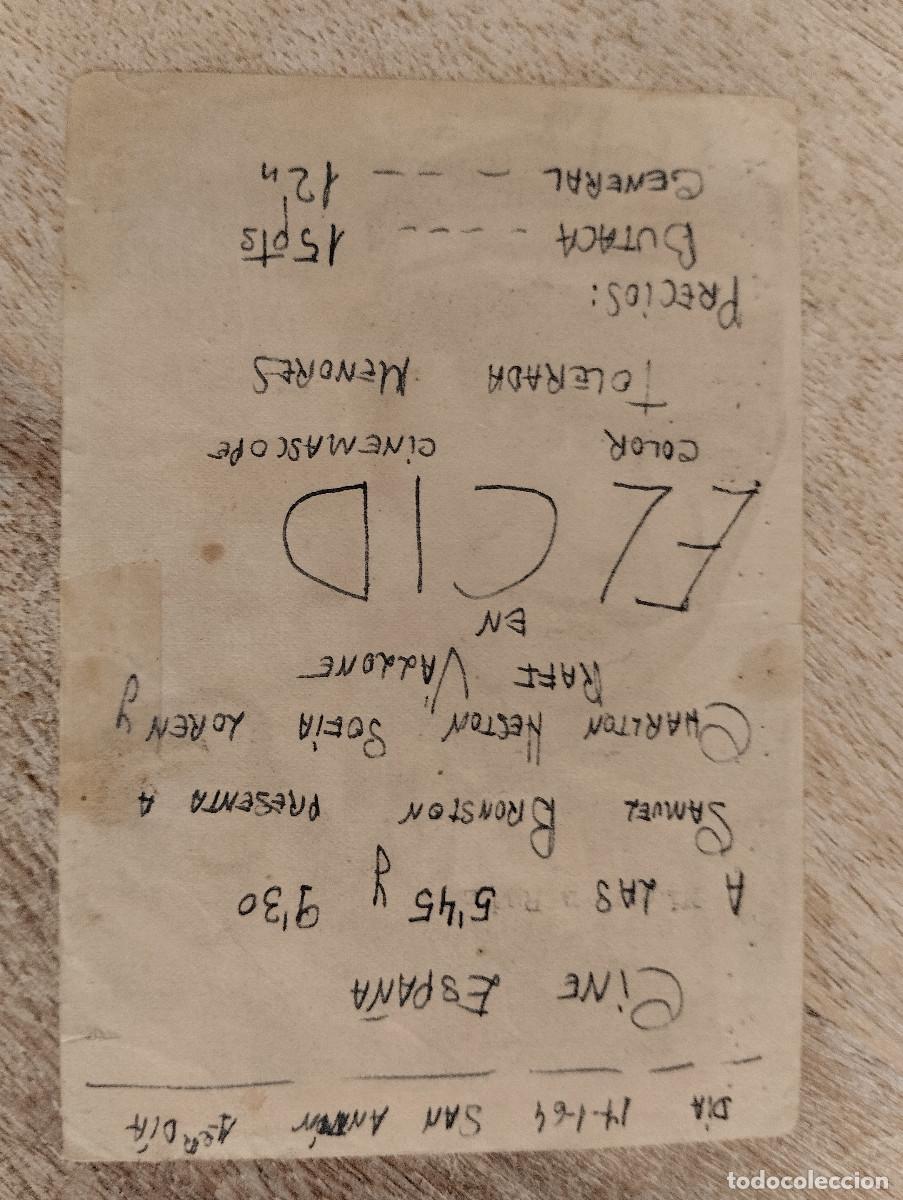 DÍA 17-1-64 SAN ANTÓN 1-ER DÍA
CINE ESPAÑA
A LAS 5'45 y 9'30
SAMUEL BRONSTON PRESENTA A
CHARLTON HESTON SOFÍA LOREN y
RAFF VALLONE
EN
EL CID
COLOR CINEMASCOPE
TOLERADA MENORES
PRECIOS:
BUTACA ----- 15 pts
GENERAL ---- 12 "
todocoleccion